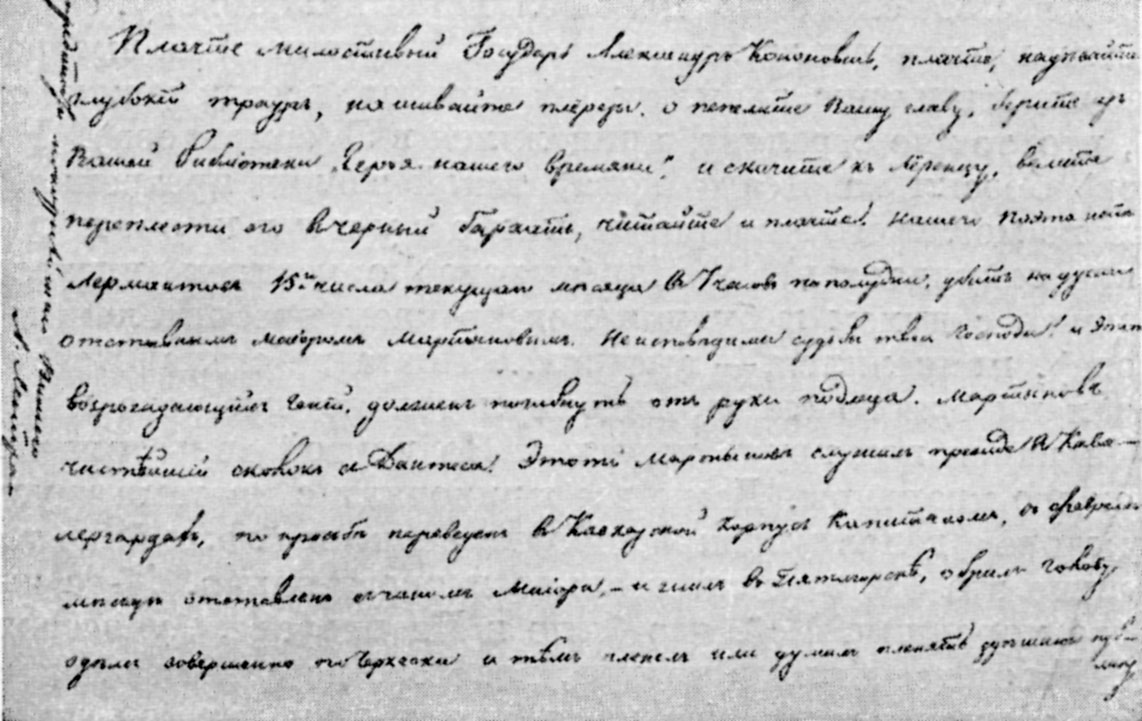 Плачте милостивый Государь Александръ Кононовичь, плачте, надевайте
глубокій трауръ, нашивайте плерезы. опепелите Вашу главу, берите изъ
Вашей библіотеки „Героя нашего времяни“ и скачите къ Лоренцу, велите
переплести его въ черный бархатъ, читайте и плачте! Нашего поэта нетъ
Лермонтовъ 15го числа текущаго месяца въ 7 часовъ пополудни, убитъ на дуэли
отставнымъ маіоромъ Мартыновымъ. Неисповедимы судьбы твои Господи! и этотъ
возрождающійся геній, долженъ погибнуть отъ руки подлеца. Мартыновъ
чистѣйшій сколокъ съ Дантеса! Этотъ Мартыновъ служилъ прежде въ Кава-
лергардахъ, по просьбе переведенъ въ Кавказской корпусъ Капитаномъ, въ февралѣ
месяце отставленъ съ чиномъ Маіора,- и жилъ въ Пятигорскѣ, обрилъ голову,
оделся совершенно по Черкески и тѣмъ пленялъ или думалъ пленять здешнюю пуб-
лику
Вашего